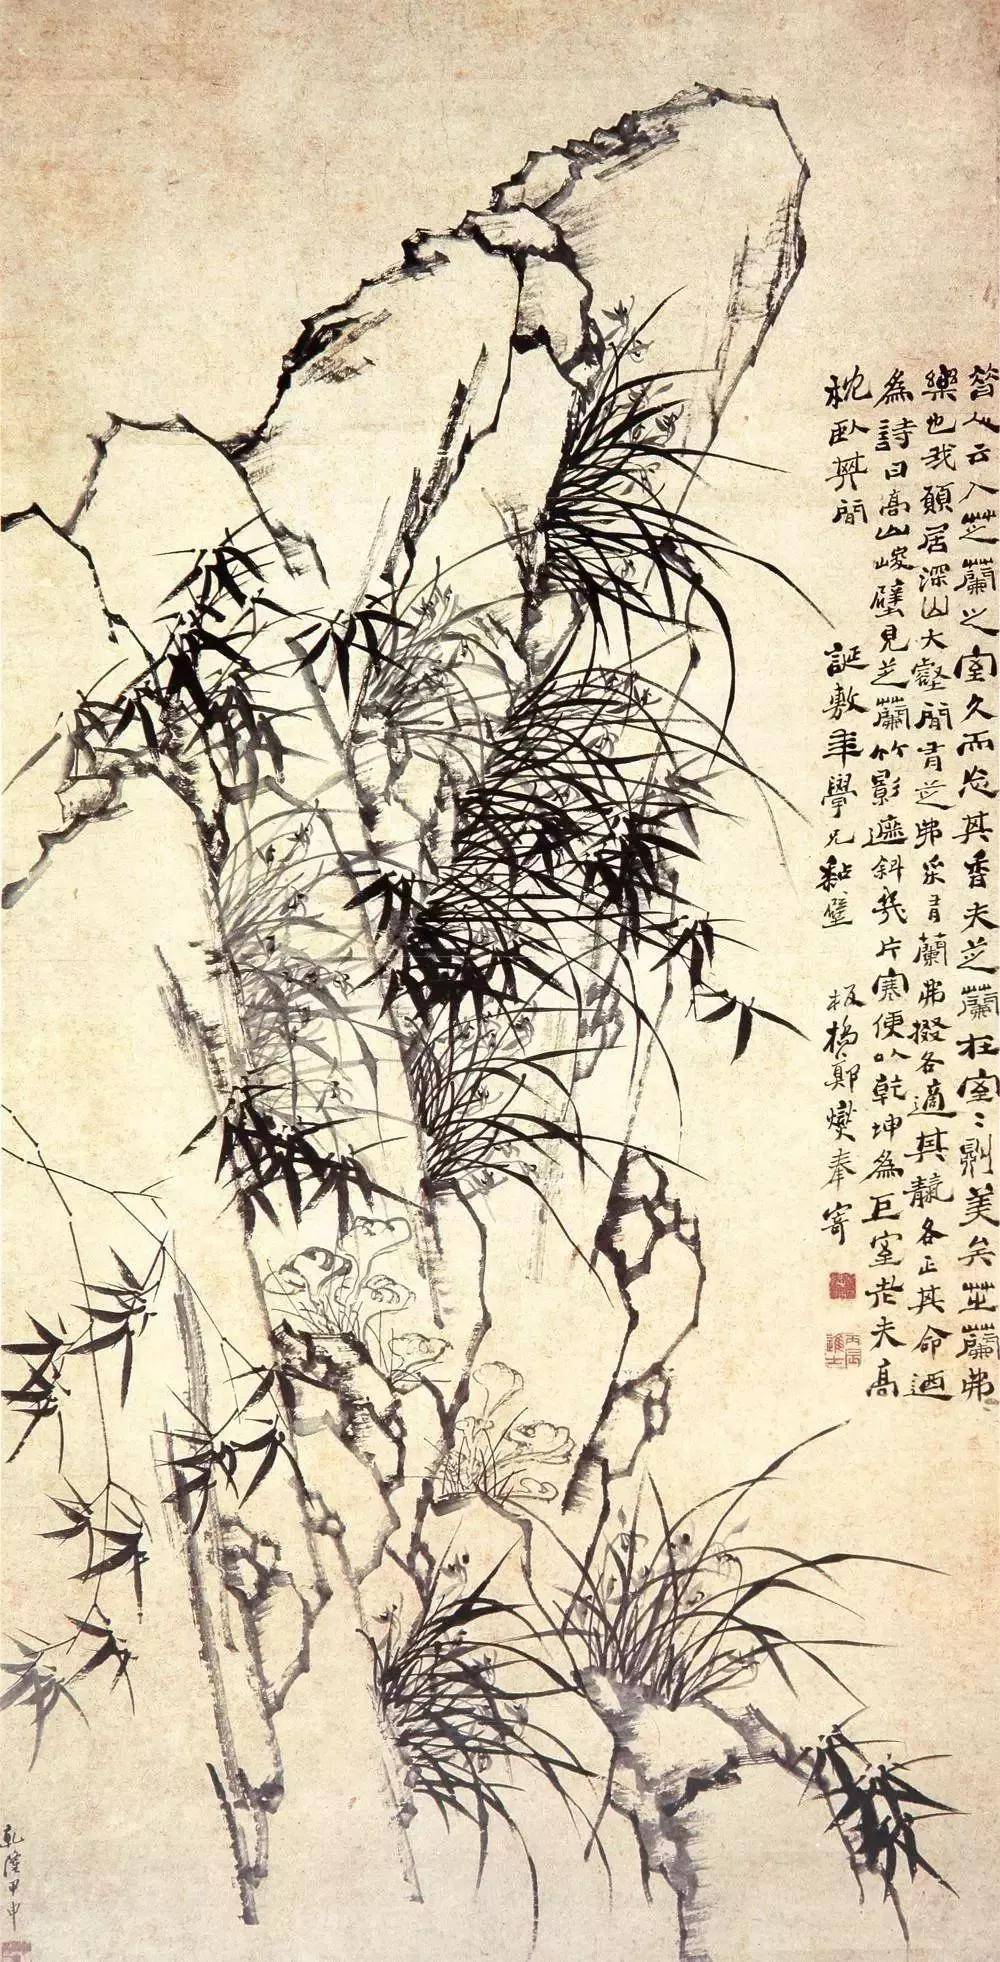 昔人云入芝蘭之室久而忘其香夫芝蘭在室〻則美矣芝蘭弗
樂也我願居深山大壑間有芝弗采有蘭弗掇各適其靝各正其命迺
為詩曰高山峻壁見芝蘭竹影遮斜幾片寒便以乾坤為巨室老夫高
枕臥其間 誕敷年學兄黏壁 板橋鄭燮奉寄
丙辰進士
乾隆甲申